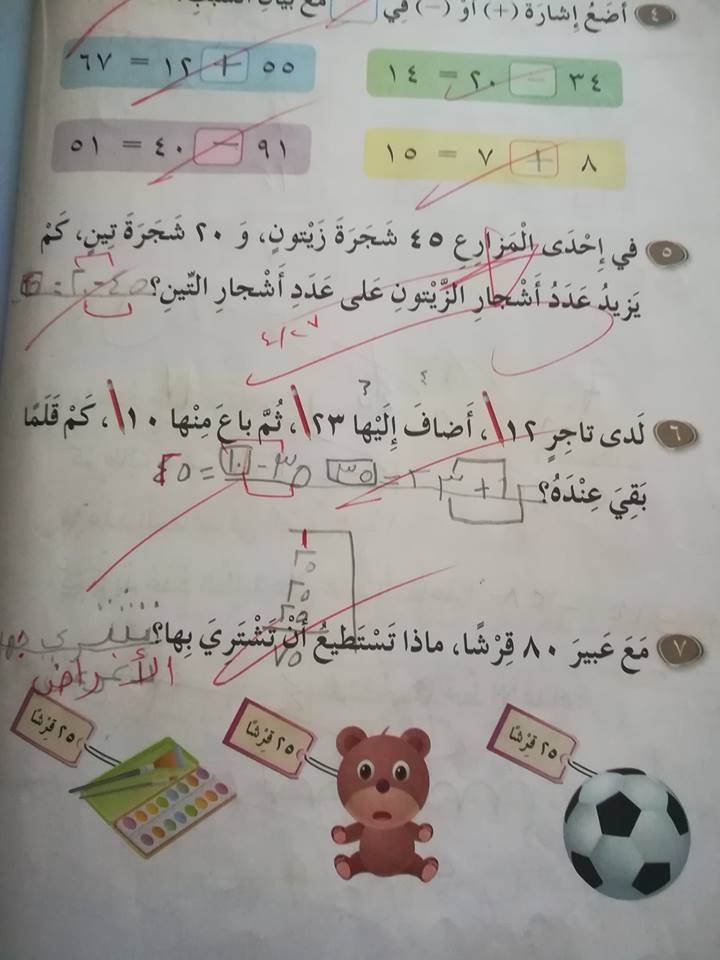 ٤ أَضَعُ إِشارَةَ (+) أَوْ (−) في مَعَ بَيانِ السَّبَبِ:
٣٤ − ٢٠ = ١٤
٥٥ + ١٢ = ٦٧
٨ + ٧ = ١٥
٩١ − ٤٠ = ٥١
٥ في إِحْدَى الْمَزارِعِ ٤٥ شَجَرَةَ زَيْتونٍ، وَ ٢٠ شَجَرَةَ تينٍ، كَمْ
يَزيدُ عَدَدُ أَشْجارِ الزَّيْتونِ عَلى عَدَدِ أَشْجارِ التّينِ؟
٦ لَدى تاجِرٍ ١٢، أَضافَ إِلَيْها ٢٣، ثُمَّ باعَ مِنْها ١٠، كَمْ قَلَمًا
بَقِيَ عِنْدَهُ؟
٣٥
٢٥
٢٥
٢٥
٧٥
٧ مَعَ عَبيرَ ٨٠ قِرْشًا، ماذا تَسْتَطيعُ أَنْ تَشْتَرِيَ بِها؟
الأغراض
٢٥ قِرْشًا
٢٥ قِرْشًا
٢٥ قِرْشًا